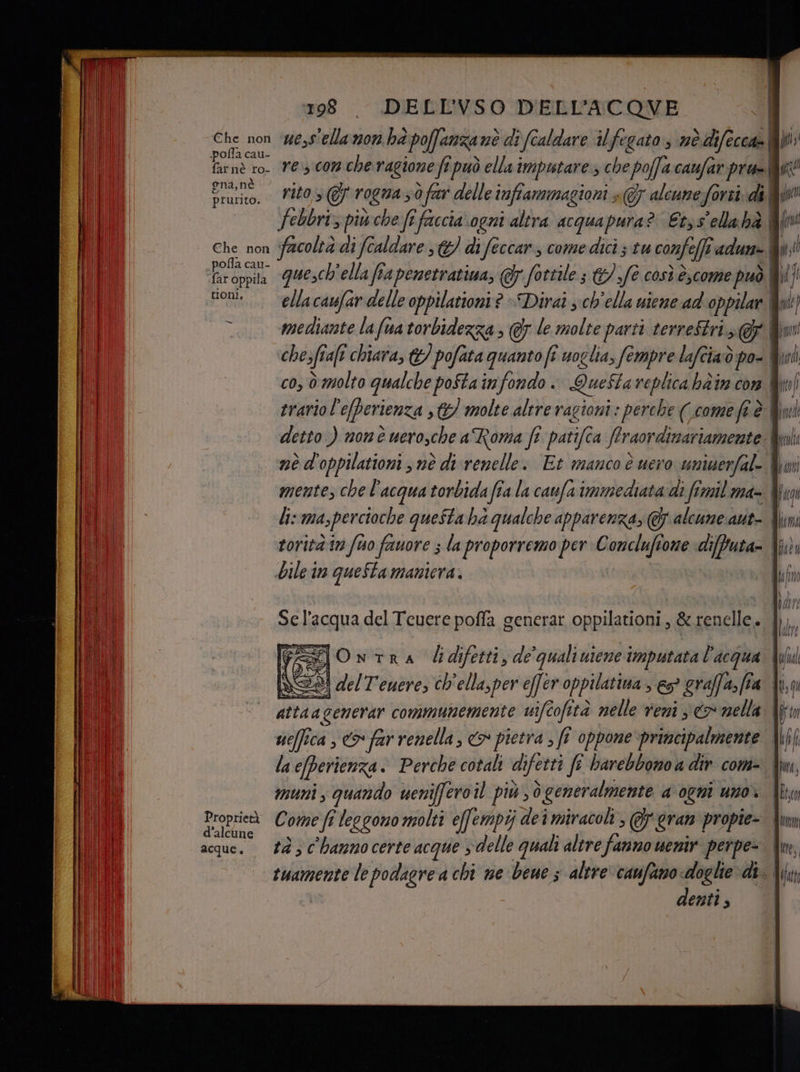 198 DELL'VSO DELL'ACQVE
Che non
possa cau-
far nè ro-
gna, nè
prurito.
ue, s'ella non hà possanza nè di scaldare il fegato, nè difecca-
re, con che ragione si può ella imputare, che possa causar pru-
rito, & rogna, ò far delle infiammagioni, & alcune sorti di
febbri, più che si faccia ogni altra acqua pura? Et, s'ella hà
Che non
possa cau-
far oppila
tioni.
facoltà di scaldare, & di seccar, come dici; tu confessi adun-
que, ch'ella sia penetratiua, & sottile; &, se così è, come può
ella causar delle oppilationi? Dirai, ch'ella uiene ad oppilar
mediante la sua torbidezza, & le molte parti terrestri, &
che, stiasi chiara, & posata quanto si uoglia, sempre lascia ò po-
co, ò molto qualche posta in fondo. Questa replica hà in con
trario l'esperienza, & molte altre ragioni: perche (come si è
detto) non è uero, che a Roma si patisca straordinariamente
nè d'oppilationi, nè di renelle. Et manco è uero uniuersal-
mente, che l'acqua torbida sia la causa immediata di simil ma-
li: ma, percioche questa hà qualche apparenza, & alcune aut-
torità in suo fauore; la proporremo per Conclusione disputa-
bile in questa maniera.
Se l'acqua del Teuere possa generar oppilationi, & renelle.
Ontra li difetti, de' quali uiene imputata l'acqua
del Teuere, ch'ella, per esser oppilatiua, & grassa, sia
atta a generar communemente uiscosità nelle reni, & nella
uessica, & far renella, & pietra, si oppone principalmente
la esperienza. Perche cotali difetti si harebbono a dir com-
muni, quando uenissero il più, ò generalmente a ogni uno.
Proprietà
d'alcune
acque.
Come si leggono molti essempij dei miracoli, & gran propie-
tà, c'hanno certe acque, delle quali altre fanno uenir perpe-
tuamente le podagre a chi ne beue; altre causano doglie di
denti,